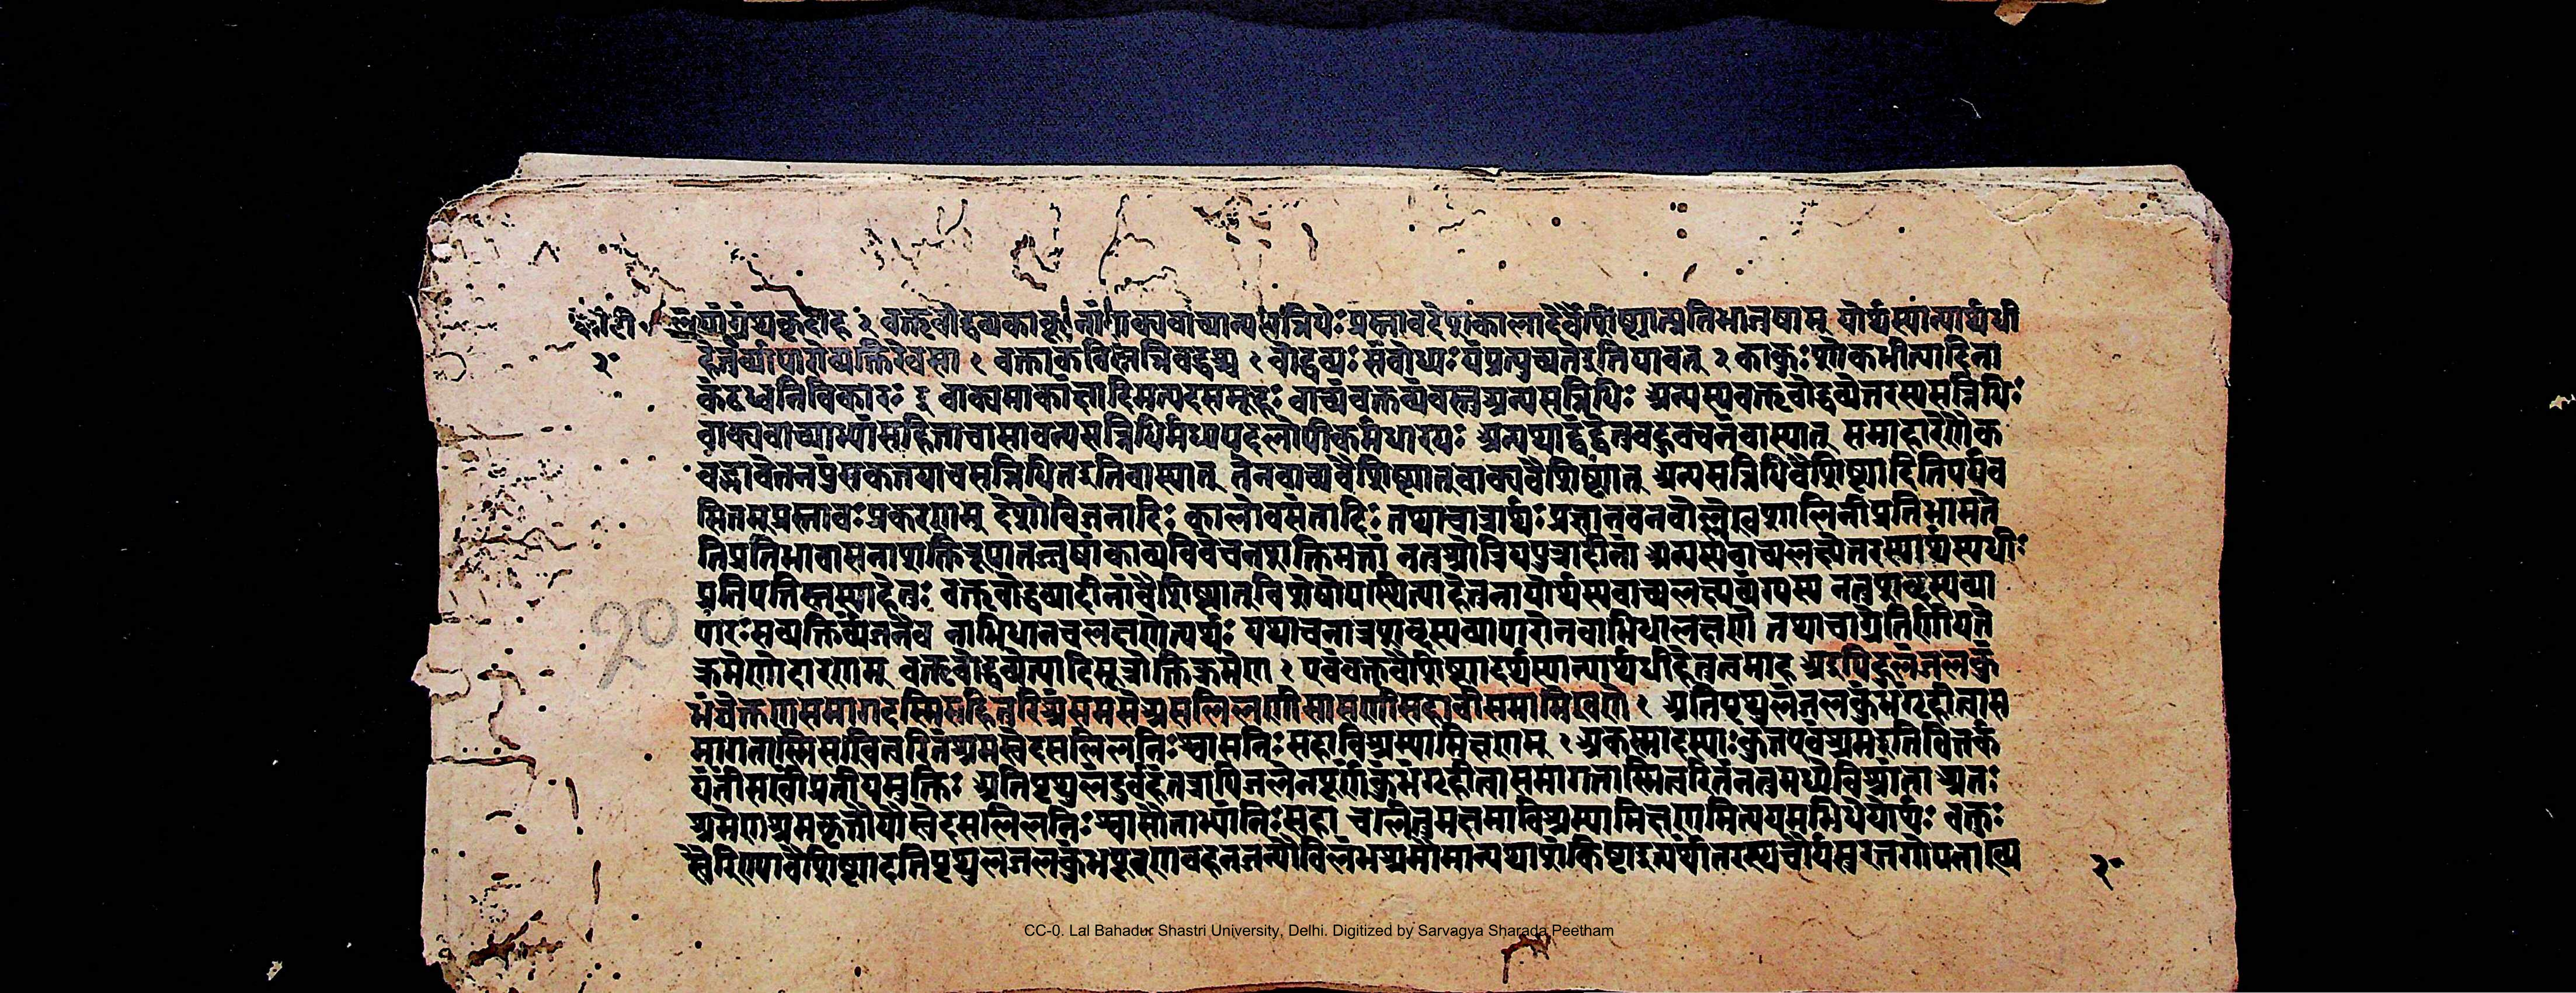 वक्तृबोद्धव्यकाकूनां वाक्यवाच्यान्यसन्निधेः प्रस्तावदेशकालादेर्वैशिष्ट्यात्प्रतिभाजुषाम् योर्थस्यान्यार्थधी
हेतुर्व्यापारोव्यक्तिरेवसा १ वक्ताकविस्तन्निबद्धश्च १ बोद्धव्यः संबोध्यः यंप्रत्युच्यतेइतियावत् २ काकुः शोकभीत्यादिना
कंठध्वनिविकारः ३ वाक्यमाकांक्षादिमत्पदसमूहः वाच्यंवक्तव्यंवस्तुअन्यसन्निधिः अन्यस्यवक्तृबोद्धव्येतरस्यसन्निधिः
वाक्यवाच्याभ्यांसहिताचासावन्यसन्निधिर्मध्यपदलोपीकर्मधारयः अन्यथाद्वंद्वेनबहुवचनंवास्यात् समाहारेणैक
वद्भावेतुनपुंसकतयाचसन्निधितइतिवास्यात् तेनवाच्यवैशिष्ट्यात्वाक्यवैशिष्ट्यात् अन्यसन्निधिवैशिष्ट्यादितिपर्यव
सितम्प्रस्तावः प्रकरणम् देशोविजनादिः कालोवसंतादिः तथाचात्रार्थः प्रज्ञानवनवोल्लेखशालिनीप्रतिभामते
तिप्रतिभावासनाशक्तिरूपातज्जुषांकाव्यविवेचनशक्तिमतां नतुश्रोत्रियपुत्रादीनां अन्यस्यैवाच्यलक्ष्येतरस्यार्थस्यधीः
प्रतिपत्तिस्तस्याहेतुः वक्तृबोद्धव्यादीनांवैशिष्ट्यात्विशेषोपस्थित्याहेतुनायोर्थस्यवाच्यलक्ष्यव्यंग्यस्य नतुशब्दस्यव्या
पारः सव्यक्तिर्व्यंजनैव नाभिधानचलक्षणेत्यर्थः यथाचनात्रशब्दस्यव्यापारोनवाभिधालक्षणे तथाचाग्रेनिर्णीयते
क्रमेणोदाहरणम् वक्तृबोद्धव्येत्यादिसूत्रोक्तिक्रमेण १ एवंवक्तृवैशिष्ट्यादर्थस्यान्यार्थधीहेतुत्वमाह अइपिहुलंजलकुं
भंघेत्तूणसमागदस्मिसहितुरिअंसमसेअसलिलणीसासणीसहावीसमामिखणं १ अतिपृथुलंजलकुंभंगृहीत्वास
मागतास्मिसखित्वरितंश्रमस्वेदसलिलनिःश्वासनिःसहाविश्रम्यामिक्षणम् १ अकस्मादस्याः कुतएवंश्रमइतिवितर्क
यंतींसखींप्रतीयमुक्तिः अतिपृथुलंदुर्वहंतत्रापिजलेनपूर्णंकुंभंगृहीत्वासमागतास्मित्वरितंनतुमध्येविश्रांता अतः
श्रमेणश्रमकृतौयौस्वेदसलिलनिःश्वासौताभ्यांनिःसहा चलितुमक्षमाविश्रम्यामिक्षणमित्ययमभिधेयोर्थः वक्तुः
स्वैरिण्यावैशिष्ट्यादतिपृथुलजलकुंभपूर्णवहनजन्यो
CC-0. Lal Bahadur Shastri University, Delhi. Digitized by Sarvagya Sharada Peetham
20